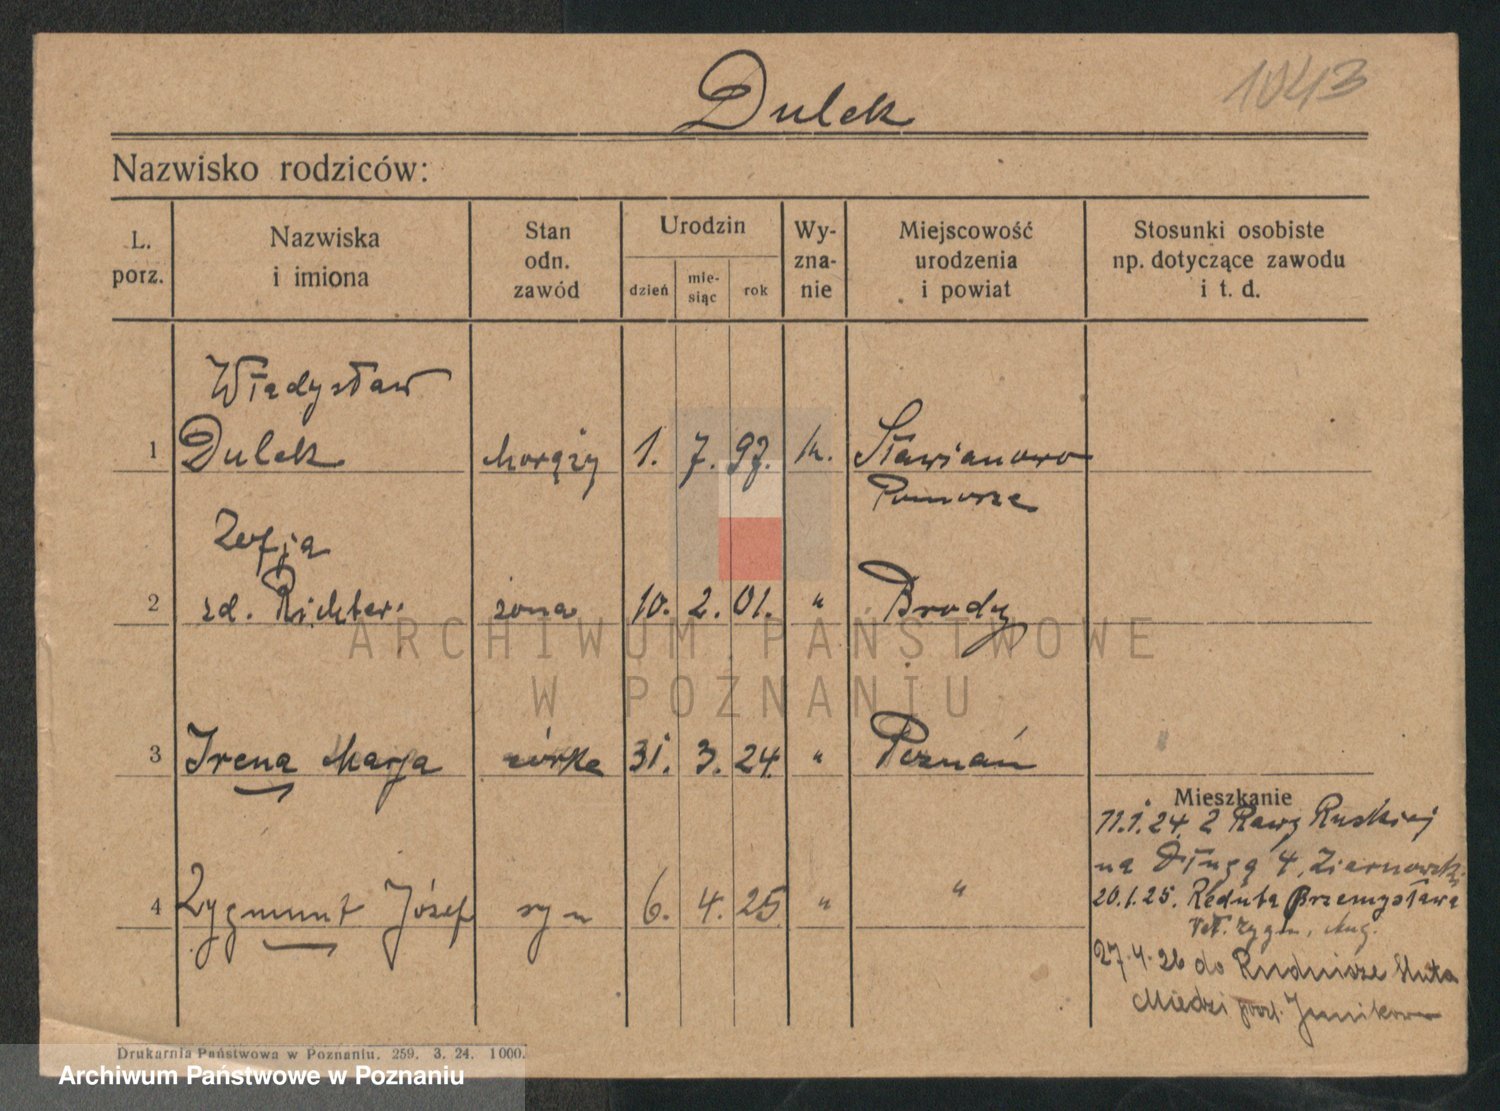 1043
Dulek
Nazwisko rodziców:
L. porz.
Nazwiska i imiona
Stan odn. zawód
Urodzin
dzień
mie-siąc
rok
Wy-zna-nie
Miejscowość urodzenia i powiat
Stosunki osobiste np. dotyczące zawodu i t. d.
Władysław
1 Dulek chorąży 1. 7. 97. k. Sławianowo
Pomorze
Zofja
2 zd. Richter. żona 10. 2. 01. " Brody
3 Irena Marja córka 31. 3. 24. " Poznań "
4 Zygmunt Józef syn 6. 4. 25 " "
Mieszkanie
11.1.24. z Rawy Ruskiej
na Długą 4, Ziarnowski
20.1.25. Reduta Przemysława
27.4.26 do Huta
Miedzi Junikowo
ARCHIWUM PAŃSTWOWE
W POZNANIU
Drukarnia Państwowa w Poznaniu. 259. 3. 24. 1000.
Archiwum Państwowe w Poznaniu